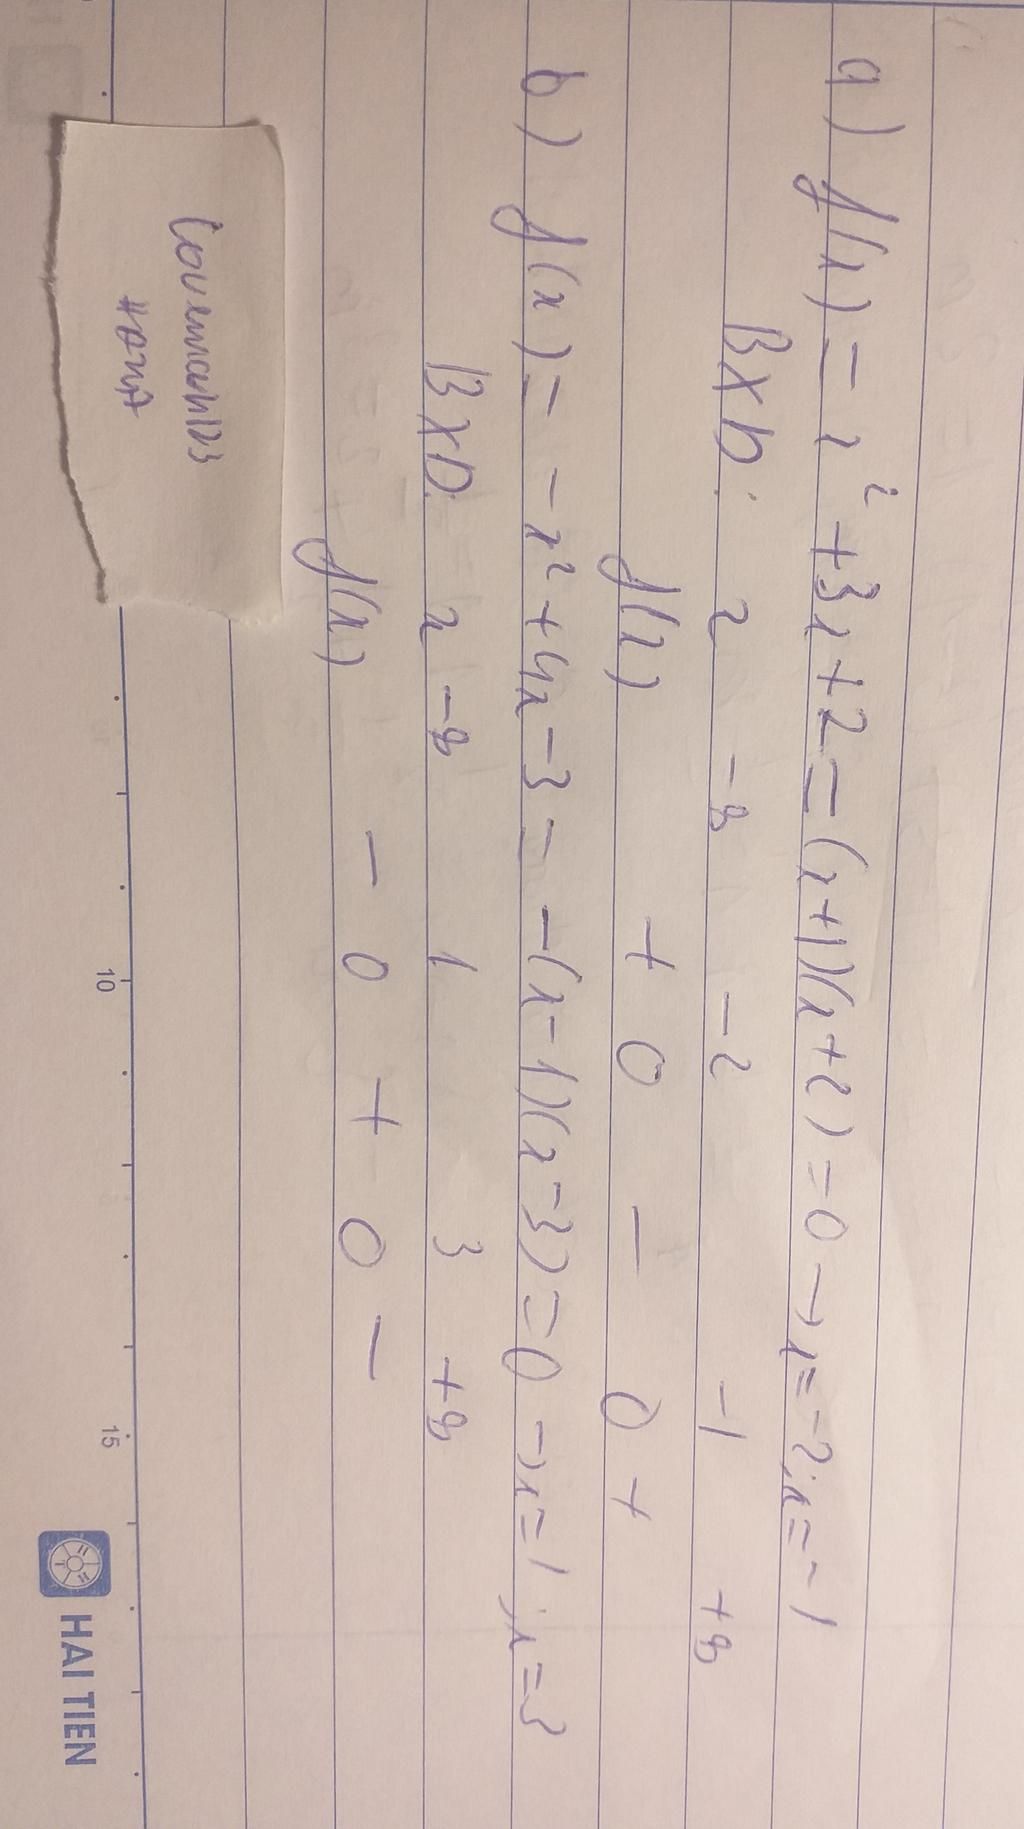 a) f(x) = x² + 3x + 2 = (x+1)(x+2) = 0 → x = -2; x = -1
BXD: x -∞ -2 -1 +∞
f(x) + 0 - 0 +
b) f(x) = -x² + 4x - 3 = -(x-1)(x-3) = 0 → x = 1; x = 3
BXD: x -∞ 1 3 +∞
f(x) - 0 + 0 -
10 15
HAI TIEN